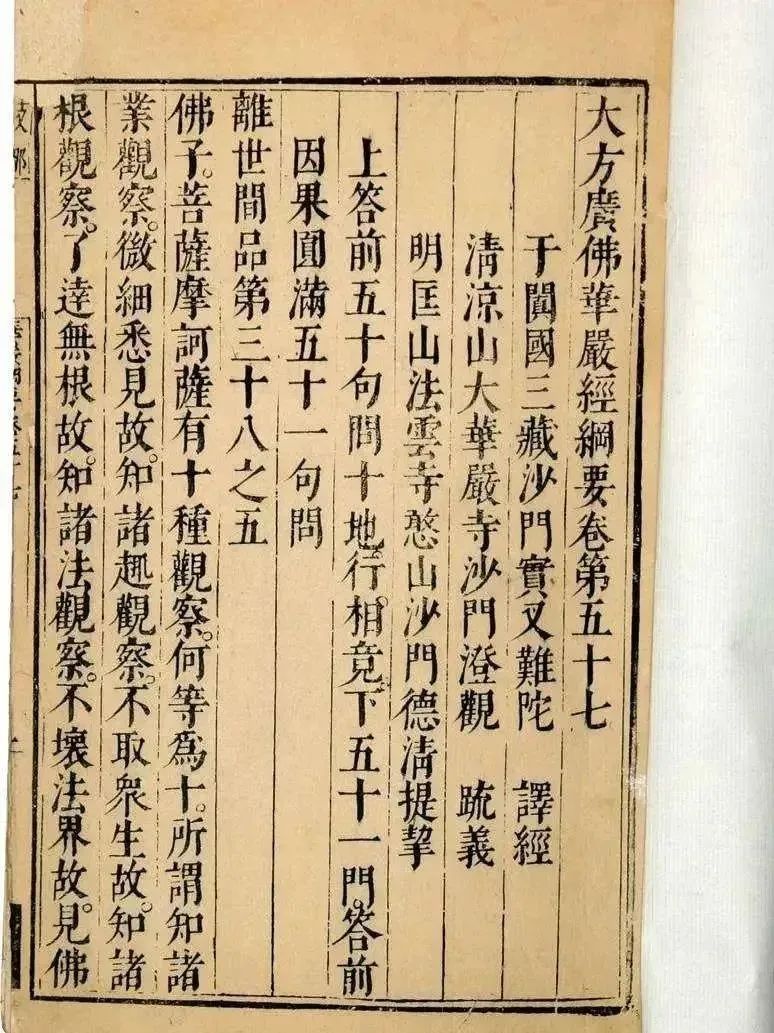 大方廣佛華嚴經綱要卷第五十七
于闐國三藏沙門實叉難陀 譯經
清涼山大華嚴寺沙門澄觀 疏義
明匡山法雲寺憨山沙門德清提挈
上答前五十句問十地行。相竟。下五十一門。答前
因果圓滿五十一句問
離世間品第三十八之五
佛子。菩薩摩訶薩有十種觀察。何等為十。所謂知諸
業觀察。微細悉見故。知諸趣觀察。不取衆生故。知諸
根觀察。了達無根故。知諸法觀察。不壞法界故。見佛